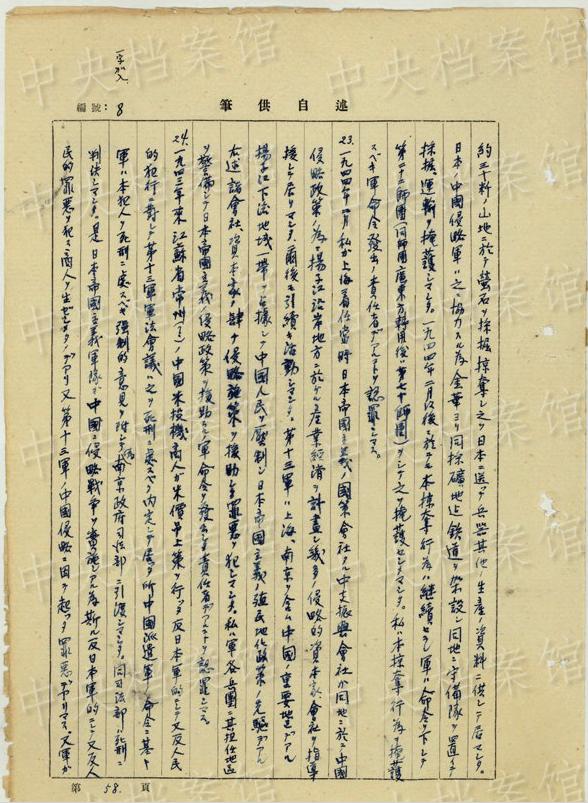 述自供筆
編號：8
約三十粁ノ山地ニ於テ螢石ヲ採掘掠奪シ之ヲ日本ニ送ツテ兵器其他ノ生產ノ資料ニ供シテ居マシタ。
日本ノ中國侵略軍ハ之ニ協力スル為金華ヨリ同採礦地迄鉄道ヲ架設シ同地ニ守備隊ヲ置イテ
採掘、運輸ヲ掩護シマシタ。一九四四年二月以後ニ於テモ本掠奪行為ハ継續セラレ軍ハ命令ヲ下シテ
第二十二師團（同師團廣東方轉用後ハ第七十師團）ヲシテ之ヲ掩護セシメマシタ。私ハ本掠奪行為ヲ掩護
スベキ軍命令發出ノ責任者デアルコトヲ認罪シマス。
23.一九四四年二月私ガ上海着任當時日本帝國主義ノ國策會社タル中支振興會社ガ同地ニ於テ中國
侵略政策ノ為ニ揚子江沿岸地方ニ於ケル產業經濟ヲ計畫シ幾多ノ侵略的資本家會社ヲ指導
援シテ居リマシタ。爾後モ引續キ活動シマシタ。第十三軍ハ上海、南京ヲ含ム中國ノ重要地デアル
揚子江下流地域一帶ヲ占據シテ中國人民ヲ壓制シ日本帝國主義ノ殖民地化政策ノ先驅デアル
右述諸會社、資本家ノ肆ナ侵略施策ヲ援助スル罪惡ヲ犯シマシタ。私ハ軍各兵團ニ其担任地區
ヲ警備シテ日本帝國主義侵略政策ヲ援助スル軍命令ヲ發出シタ責任者デアルコトヲ認罪シマス
24.一九四三年末江蘇省常州ノ中國米投機商人ガ米價吊上策ヲ行ツタ反日本軍的ニシテ又反人民
的犯行ニ對シテ第十三軍軍法會議ハ之ヲ死刑ニ處スベク內定シテ居タ所中國派遣軍ノ命令ニ基キ
軍ハ本犯人ヲ死刑ニ處スベキ強制的意見ヲ附シテ南京政府司法部ニ引渡シマシタ。同司法部ハ死刑ニ
判決シマシタ。是日本帝國主義軍隊ガ中國ニ侵略戰爭ヲ 為斯ル反日本軍的ニシテ又反人
民的罪惡ヲ犯ス商人ヲ生ゼシメタノデアリ又第十三軍ノ中國侵略ニ因テ起ツタ罪惡デアリマス。又軍ガ
第58.頁
中央档案馆